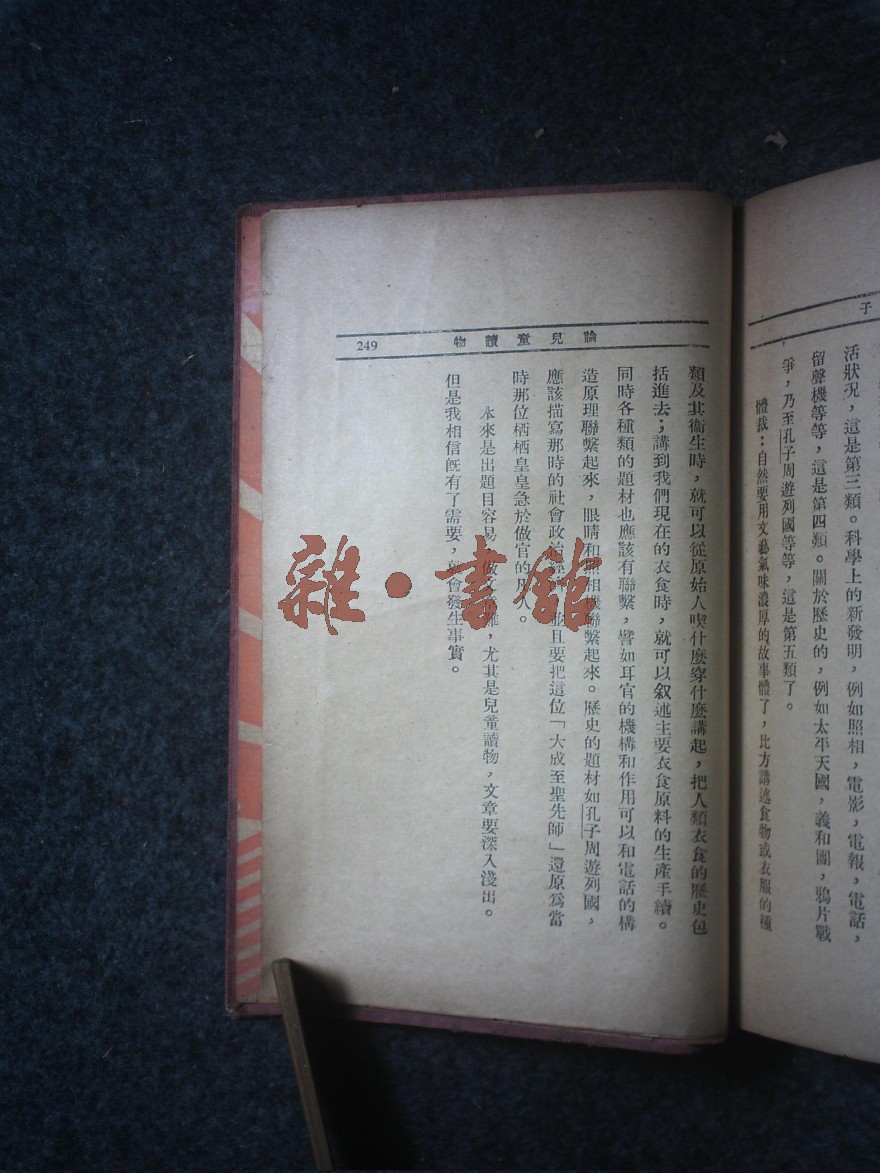 子
活狀況，這是第三類。科學上的新發明，例如照相，電影，電報，電話，
留聲機等等，這是第四類。關於歷史的，例如太平天國，義和團，鴉片戰
爭，乃至孔子周遊列國等等，這是第五類了。
體裁：自然要用文藝氣味濃厚的故事體了，比方講述食物或衣服的種
論兒童讀物
249
類及其衞生時，就可以從原始人喫什麼穿什麼講起，把人類衣食的歷史包
括進去；講到我們現在的衣食時，就可以叙述主要衣食原料的生產手續。
同時各種類的題材也應該有聯繫，譬如耳官的機構和作用可以和電話的構
造原理聯繫起來，眼睛和照相機聯繫起來。歷史的題材如孔子周遊列國，
應該描寫那時的社會政治，並且要把這位「大成至聖先師」還原爲當
時那位栖栖皇皇急於做官的凡人。
本來是出題目容易，做文難，尤其是兒童讀物，文章要深入淺出。
但是我相信旣有了需要，就會發生事實。
雜·書館